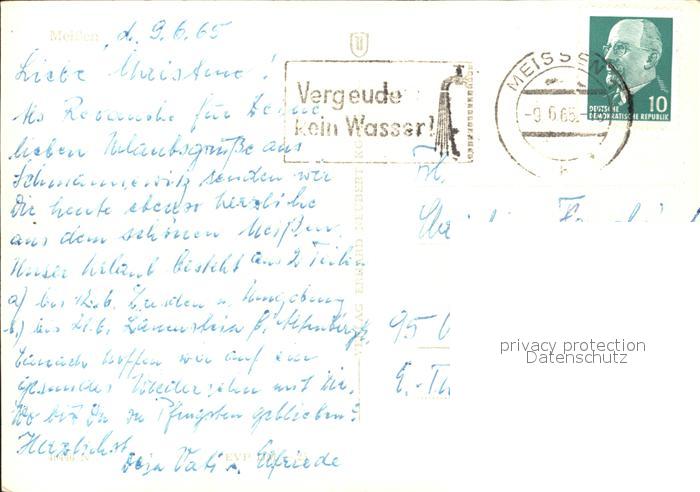 Meißen, d. 9.6.65
Liebe Christine!
Als Revanche für Deine
lieben Urlaubsgrüße aus
senden wir
Dir heute ebenso herzliche
aus dem schönen Meißen.
Unser Urlaub besteht aus 2 Teilen
a) bis 12.6. u. Umgebung
b) bis 21.6.
Danach hoffen wir auf ein
gesundes Wiedersehen mit Dir.
Wo bist Du zu Pfingsten geblieben?
Herzlichst
Dein Vati u. Elfriede
Vergeude
kein Wasser!
MEISSEN
-9.6.65.
DEUTSCHE
DEMOKRATISCHE REPUBLIK
10
95
privacy protection
Datenschutz
EVP